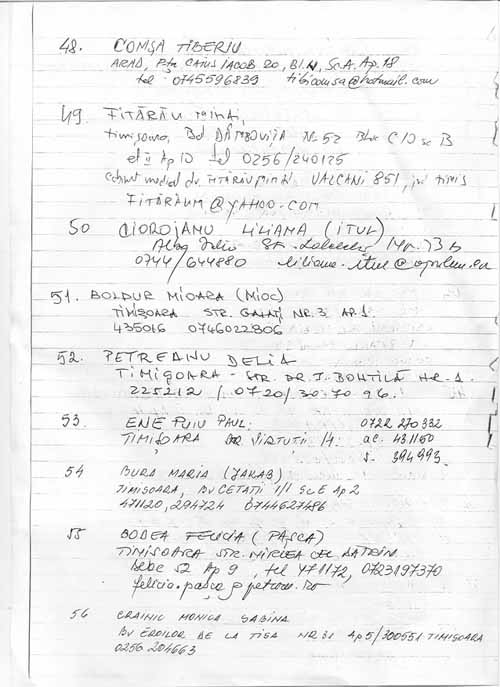 48. COMȘA TIBERIU
ARAD, P-ța CAIUS IACOB 20, Bl. N, Sc. A. Ap. 18
tel 0745596839 tibicomsa@hotmail.com
49. FITĂRĂU MIHAI,
timișoara, Bd DÂMBOVIȚA Nr 52 Bloc C10 sc B
et II Ap 10 tel 0256/240175
Cabinet medical dr. FITĂRĂU MIHAI, VALCANI 851, jud TIMIȘ
FITARAUM@YAHOO.COM
50 CIOROJANU LILIANA (ITUL)
Str. Nr. 73 b
0744/644880
51. BOLDUR MIOARA (MIOC)
TIMIȘOARA STR. GALAȚI NR. 3 AP. 1
435016 0746022806
52. PETREANU DELIA
TIMIȘOARA - STR. DR. I. NR. 1.
225212 / 0720/30 70 96.
53 ENE PUIU PAUL: 0722 270332
TIMIȘOARA VIRTUTII 14: ac. 431150
s. 394993.
54 BURA MARIA (JAKAB)
TIMIȘOARA, BV CETATII 1/1 SC E Ap 2
471120, 294724 0744627486
55 BODEA FELICIA (PAȘCA)
TIMIȘOARA STR. MIRCEA CEL BATRIN
52 Ap 9, tel 471172, 0723197370
felicia.pasca@petrom.ro
56 CRAINIC MONICA SABINA
BV EROILOR DE LA TISA NR 31 Ap 5/300551 TIMIȘOARA
0256 204663